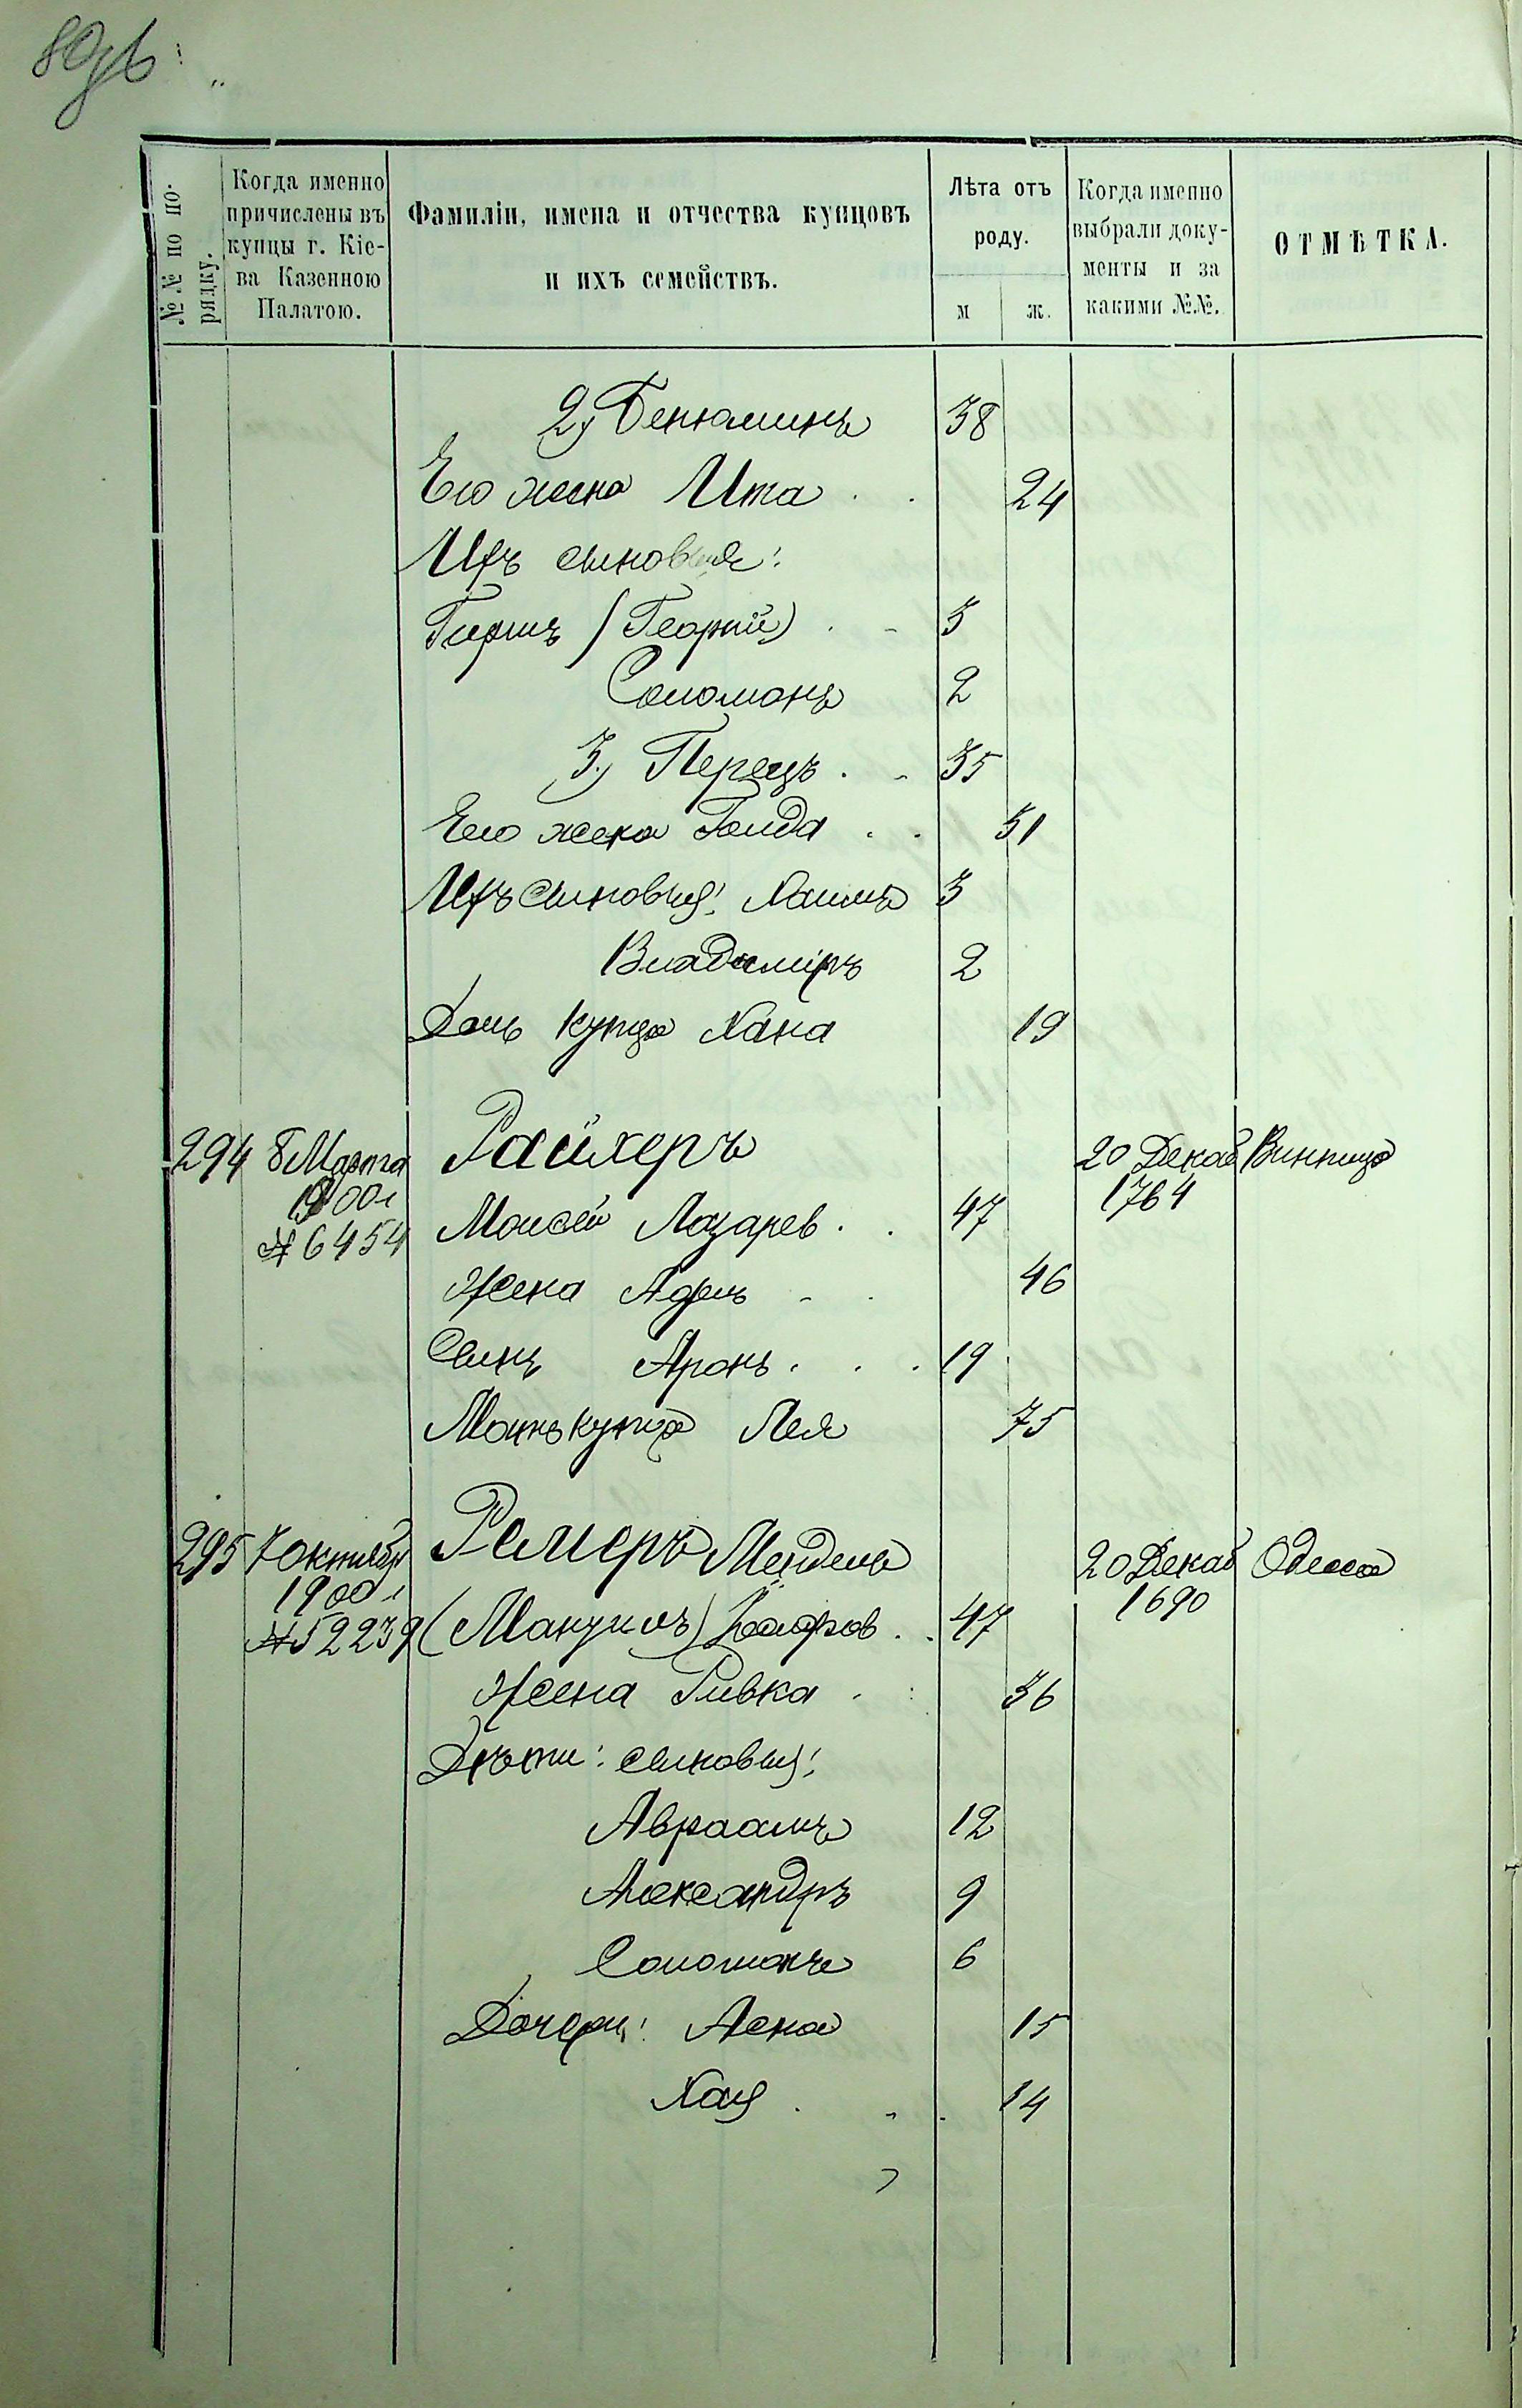 №№ по по-
рядку.
Когда именно
причислены въ
купцы г. Кіе-
ва Казенною
Палатою.
Фамиліи, имена и отчества купцовъ
и ихъ семействъ.
Лѣта отъ
роду.
м ж.
Когда именно
выбрали доку-
менты и за
какими №№.
ОТМѢТКА.
2) Бенюминъ 38
Его жена Ита . . 24
Ихъ сыновья:
Гиршъ (Георгій) . - 3
Соломонъ 2
3.) Перецъ . - 35
Его жена Голда . . 31
Ихъ сыновья: Хаимъ 3
Владиміръ 2
Дочь купца Хана 19
294 8 Марта Райхеръ 20 Декаб Винница
1900 г 1764
№ 6454 Моисей Лазарев . . 47
Жена Адель - . 46
Сынъ Аронъ . . . 19
Мать купца Лея 75
295 7 октября Ремеръ Мендель 20 Декаб Одесса
1900 г 1690
№ 52239 (Мануилъ) . . 47
Жена Ривка . : 36
Дѣти: сыновья:
Авраамъ 12
Александръ 9
Соломонъ 6
Дочери: Асна 15
Хая . - - 14